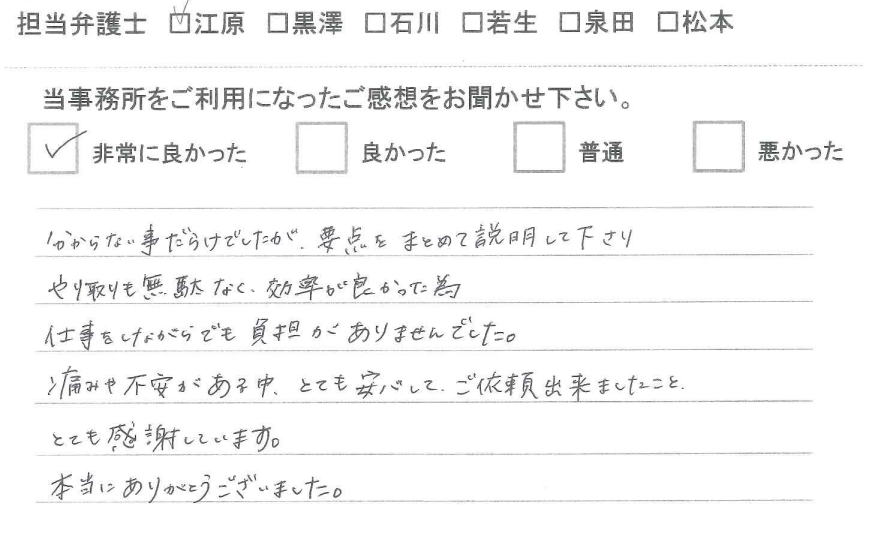 担当弁護士 ☑江原 □黒澤 □石川 □若生 □泉田 □松本
当事務所をご利用になったご感想をお聞かせ下さい。
☑ 非常に良かった □ 良かった □ 普通 □ 悪かった
分からない事だらけでしたが、要点をまとめて説明して下さり
やり取りも無駄なく、効率が良かった為
仕事をしながらでも負担がありませんでした。
痛みや不安がある中、とても安心して、ご依頼出来ましたこと、
とても感謝しています。
本当にありがとうございました。